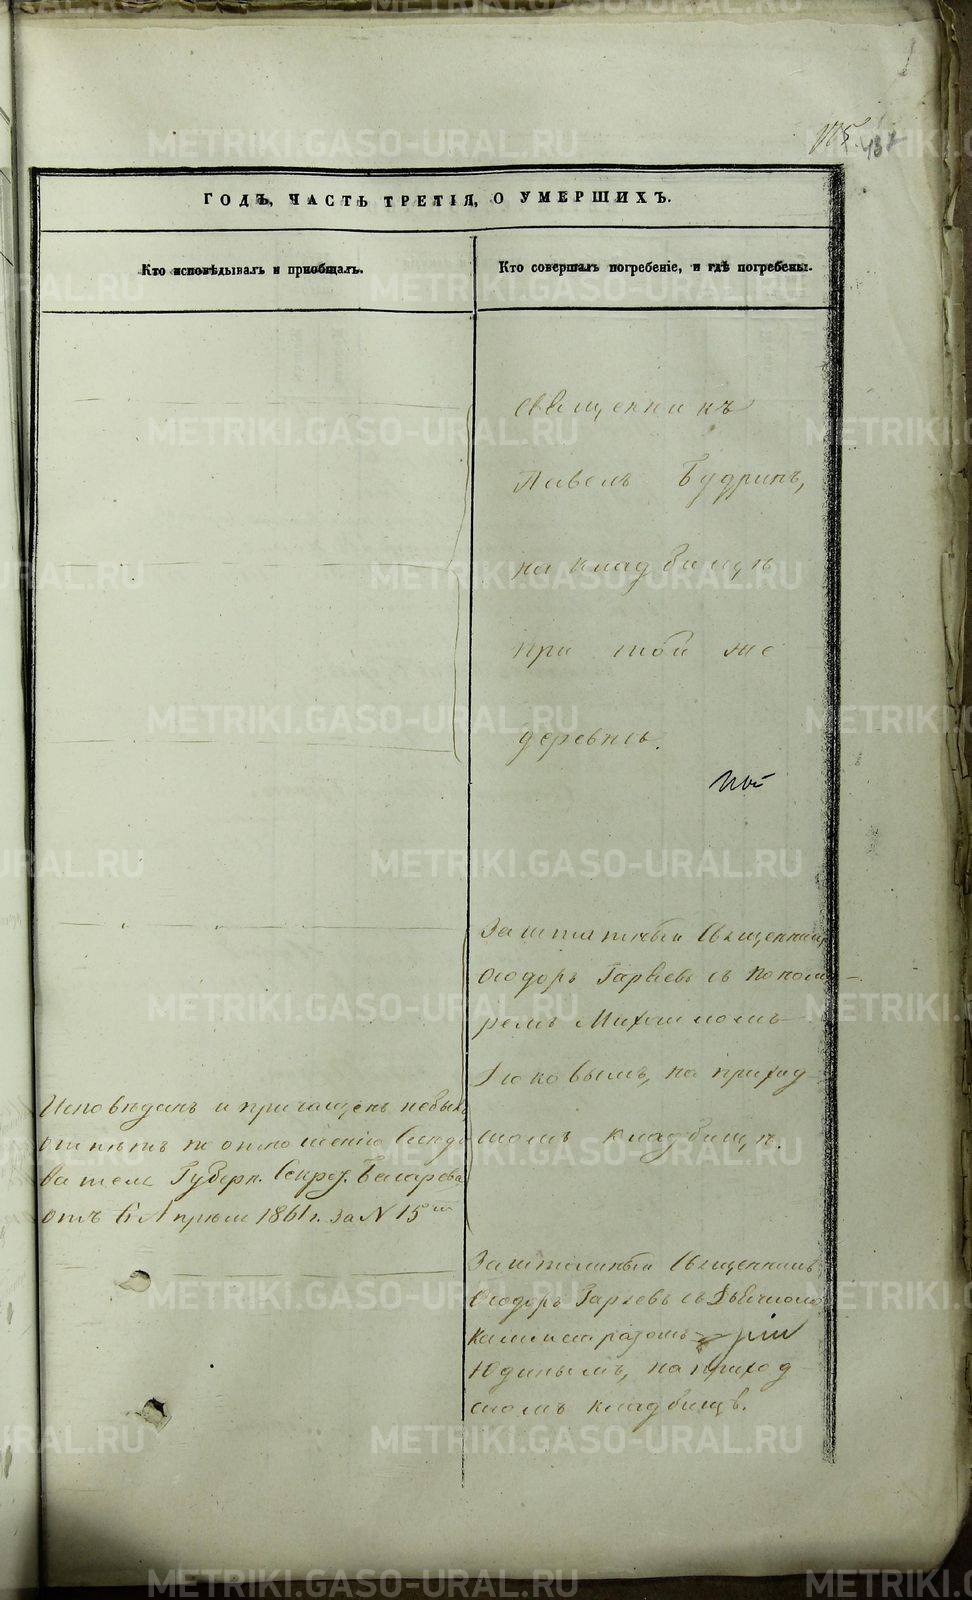 ГОДЪ, ЧАСТЬ ТРЕТІЯ, О УМЕРШИХЪ.
Кто исповѣдывалъ и пріобщалъ.
Кто совершалъ погребеніе, и гдѣ погребены.
Священникъ
Павелъ Будринъ,
на кладбищѣ
при той же
деревнѣ.
Заштатный Священникъ
Ѳеодоръ Гаряевъ съ Понома-
ремъ Михаиломъ
на приход
скомъ кладбищѣ.
Исповѣданъ и причащенъ небылъ
отпѣтъ по отношенію Слѣдо
вателя Губерн. Секрет.
отъ 6 Апрѣля 1861 г. за N 15
Заштатный Священникъ
Ѳеодоръ Гаряевъ съ Дьячкомъ
Калистратомъ
Юдинымъ, на приход
скомъ кладбищѣ.
METRIKI.GASO-URAL.RU